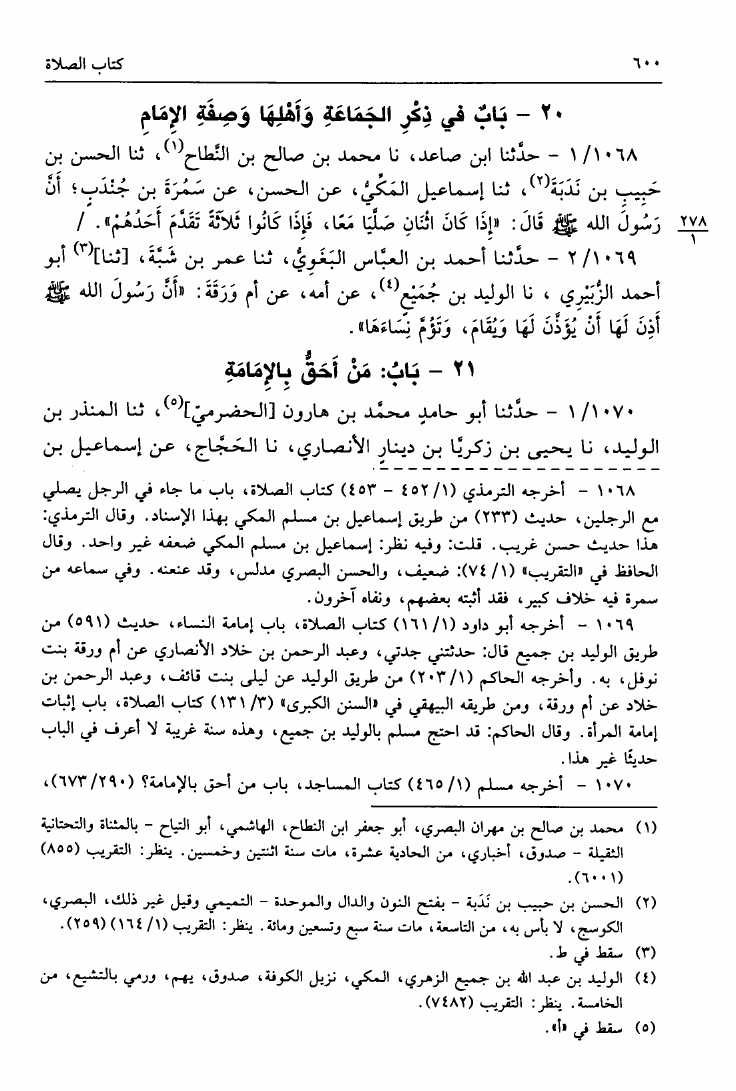 ٦٠٠ كتاب الصلاة
٢٠ - بَابٌ في ذِكْرِ الجَمَاعَةِ وَأَهْلِهَا وَصِفَةِ الإِمَامِ
١/١٠٦٨ - حدَّثنا ابن صاعد، نا محمد بن صالح بن النَّطاح(١)، ثنا الحسن بن
حَبِيبِ بن نَدَبَةَ(٢)، ثنا إسماعيل المَكِّيُّ، عن الحسن، عن سَمُرَةَ بن جُنْدَبٍ؛ أَنَّ
رَسُولَ الله ﷺ قَالَ: «إِذَا كَانَ اثْنَانِ صَلَّيَا مَعًا، فَإِذَا كَانُوا ثَلاَثَةً تَقَدَّمَ أَحَدُهُمْ». /
٢٧٨
١
٢/١٠٦٩ - حدَّثنا أحمد بن العبَّاس البَغَوِيُّ، ثنا عمر بن شَبَّةَ، [ثنا](٣) أبو
أحمد الزُّبَيْرِي ، نا الوليد بن جُمَيْعٍ(٤)، عن أمه، عن أم وَرَقَةَ: «أَنَّ رَسُولَ الله ﷺ
أَذِنَ لَهَا أَنْ يُؤَذَّنَ لَهَا وَيُقَامَ، وَتَؤُمَّ نِسَاءَهَا».
٢١ - بَابُ: مَنْ أَحَقُّ بِالإِمَامَةِ
١/١٠٧٠ - حدَّثنا أبو حامدٍ محمَّد بن هارون [الحضرميّ](٥)، ثنا المنذر بن
الوليد، نا يحيى بن زكريَّا بن دينارِ الأنصاري، نا الحَجَّاج، عن إسماعيل بن
١٠٦٨ - أخرجه الترمذي (١/ ٤٥٢ - ٤٥٣) كتاب الصلاة، باب ما جاء في الرجل يصلي
مع الرجلين، حديث (٢٣٣) من طريق إسماعيل بن مسلم المكي بهذا الإسناد. وقال الترمذي:
هذا حديث حسن غريب. قلت: وفيه نظر: إسماعيل بن مسلم المكي ضعفه غير واحد. وقال
الحافظ في «التقريب» (١/ ٧٤): ضعيف، والحسن البصري مدلس، وقد عنعنه. وفي سماعه من
سمرة فيه خلاف كبير، فقد أثبته بعضهم، ونفاه آخرون.
١٠٦٩ - أخرجه أبو داود (١/ ١٦١) كتاب الصلاة، باب إمامة النساء، حديث (٥٩١) من
طريق الوليد بن جميع قال: حدثتني جدتي، وعبد الرحمن بن خلاد الأنصاري عن أم ورقة بنت
نوفل، به. وأخرجه الحاكم (١/ ٢٠٣) من طريق الوليد عن ليلى بنت قائف، وعبد الرحمن بن
خلاد عن أم ورقة، ومن طريقه البيهقي في «السنن الكبرى» (٣/ ١٣١) كتاب الصلاة، باب إثبات
إمامة المرأة. وقال الحاكم: قد احتج مسلم بالوليد بن جميع، وهذه سنة غريبة لا أعرف في الباب
حديثًا غير هذا.
١٠٧٠ - أخرجه مسلم (١/ ٤٦٥) كتاب المساجد، باب من أحق بالإمامة؟ (٦٧٣/٢٩٠)،
(١) محمد بن صالح بن مهران البصري، أبو جعفر ابن النطاح، الهاشمي، أبو التياح - بالمثناة والتحتانية
الثقيلة - صدوق، أخباري، من الحادية عشرة، مات سنة اثنتين وخمسين. ينظر: التقريب (٨٥٥)
(٦٠٠١).
(٢) الحسن بن حبيب بن نَدَبة - بفتح النون والدال والموحدة - التميمي وقيل غير ذلك، البصري،
الكوسج، لا بأس به، من التاسعة، مات سنة سبع وتسعين ومائة. ينظر: التقريب (١/ ١٦٤) (٢٥٩).
(٣) سقط في ط.
(٤) الوليد بن عبد الله بن جميع الزهري، المكي، نزيل الكوفة، صدوق، يهم، ورمي بالتشيع، من
الخامسة. ينظر: التقريب (٧٤٨٢).
(٥) سقط في «أ».